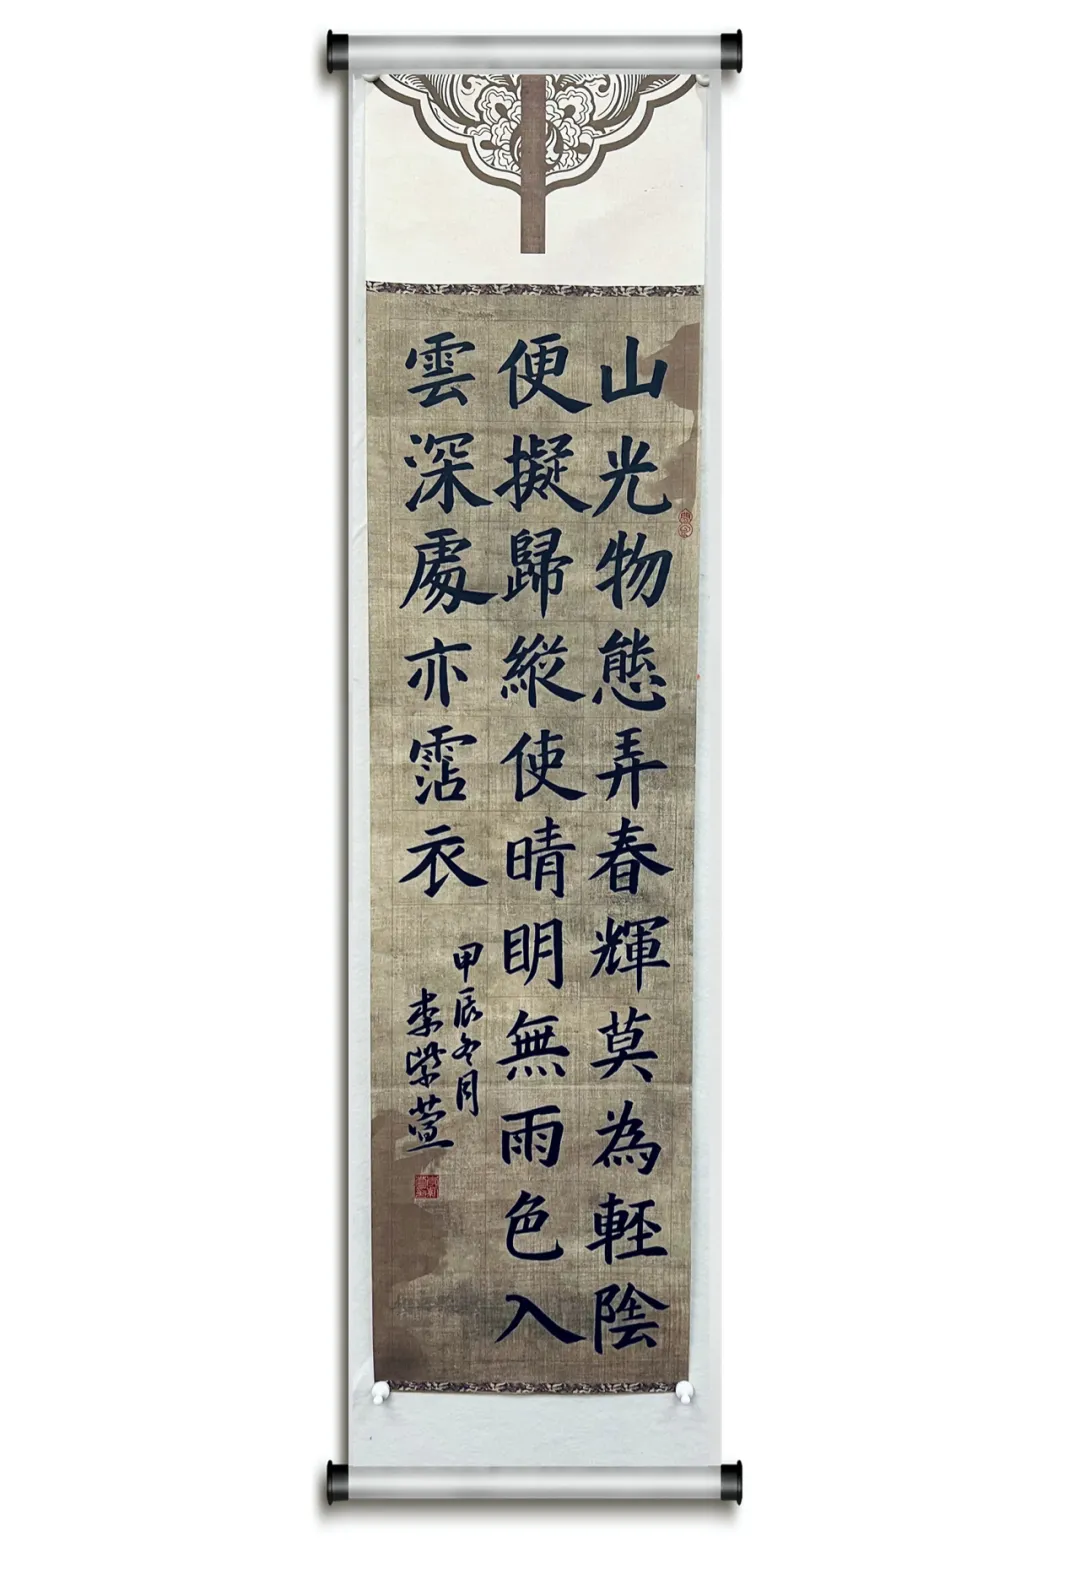 山光物態弄春輝莫為輕陰
便擬歸縱使晴明無雨色入
雲深處亦霑衣
甲辰冬月
李紫萱